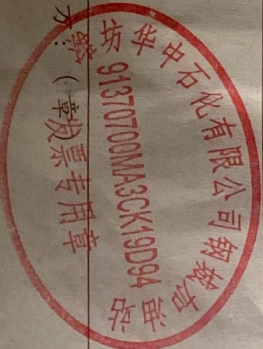 坊华中石化有限公司钢城加油站
91370700MA3CK19D94
发票专用章
（章）